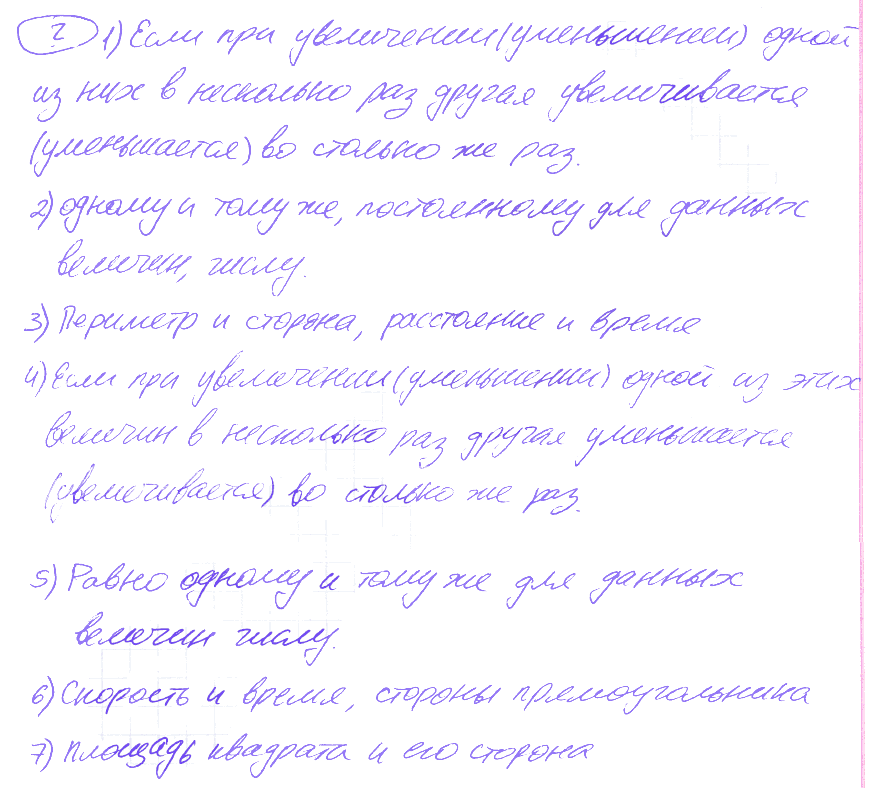 ? 1) Если при увеличении (уменьшении) одной
из них в несколько раз другая увеличивается
(уменьшается) во столько же раз.
2) одному и тому же, постоянному для данных
величин, числу.
3) Периметр и сторона, расстояние и время
4) Если при увеличении (уменьшении) одной из этих
величин в несколько раз другая уменьшается
(увеличивается) во столько же раз.
5) Равно одному и тому же для данных
величин числу.
6) Скорость и время, стороны прямоугольника
7) Площадь квадрата и его сторона